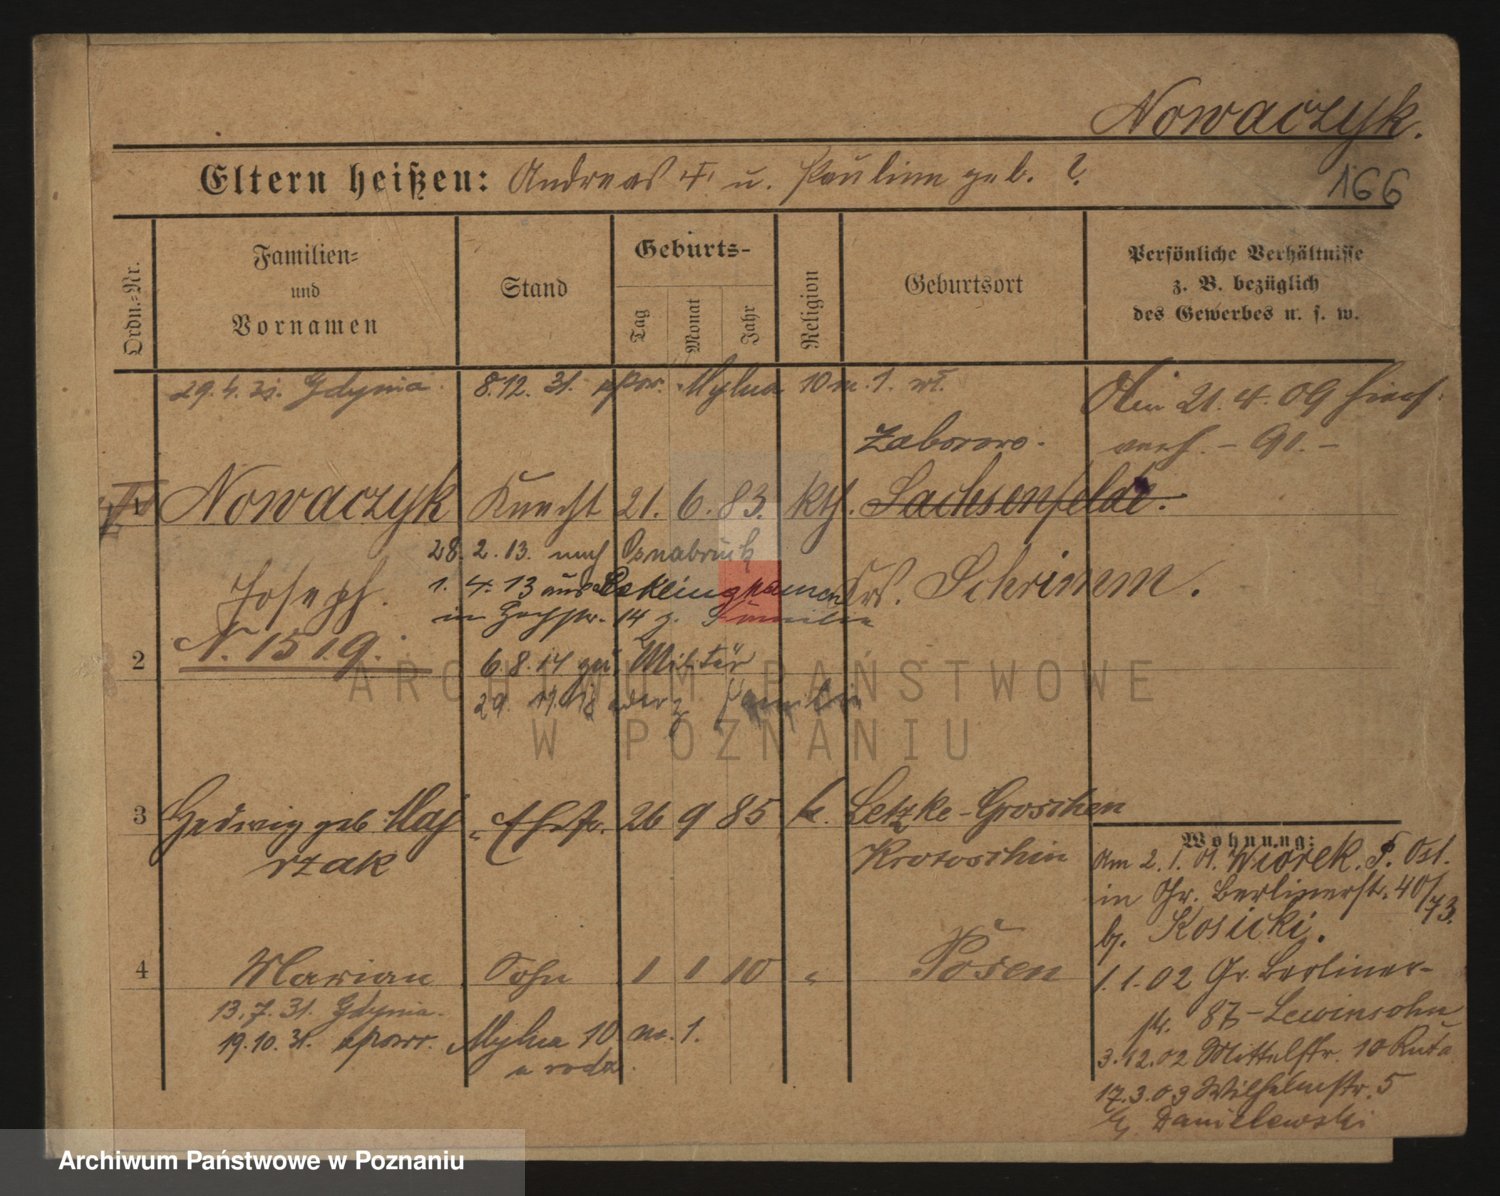 Nowaczyk.
166
Eltern heißen: Andreas † u. Pauline geb. ?
Ordn.-Nr.
Familien-
und
Vornamen
Stand
Geburts-
Tag
Monat
Jahr
Religion
Geburtsort
Persönliche Verhältnisse
z. B. bezüglich
des Gewerbes u. s. w.
29.4.31. Gdynia
8.12.31. Mylna 10 m. 1.
21.4.09
Zaborowo.
- 90.-
1 Nowaczyk Knecht 21. 6. 83. kth. Sachsenfelde.
28.2.13. nach Osnabrück
Joseph.
1.4.13 aus Reklinghausen
Krs. Schrimm.
14 z. Familie
N. 1519.
2
6.8.14 zum Militär
29. 11. 18 Familie
3 Hedwig geb Maj- Ehefr. 26 9 85 k. Letzke-Groschen
rzak
Krotoschin
4 Marian Sohn 1 1 10 " Posen
13.7.31. Gdynia.
19.10.31. spowr. Mylna 10 m. 1.
u rodz.
Wohnung:
Am 2.1.01. Wiorek. P. Ost.
in Gr. Berlinerstr. 40/73.
b. Kosicki.
1.1.02 Gr. Berliner-
str. 87 - Lewinsohn
3.12.02 Mittelstr. 10 Ruta
17.3.03 Wilhelmstr. 5
b. Danielewski
ARCHIWUM PAŃSTWOWE
W POZNANIU
Archiwum Państwowe w Poznaniu